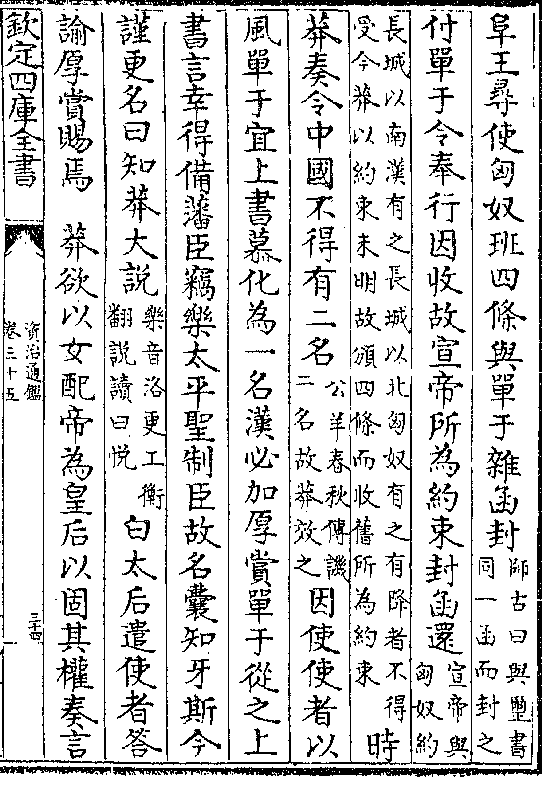 阜王尋使匈奴班四條與單于雜函封師古曰與璽書
同一函而封之
付單于令奉行因收故宣帝所為約束封函還宣帝與
匈奴約
長城以南漢有之長城以北匈奴有之有降者不得
受今莽以約束未明故頒四條而收舊所為約束
時
莽奏令中國不得有二名公羊春秋傳譏
二名故莽效之
因使使者以
風單于宜上書慕化為一名漢必加厚賞單于從之上
書言幸得備藩臣竊樂太平聖制臣故名囊知牙斯今
謹更名曰知莽大說樂音洛更工衡
翻說讀曰悅
白太后遣使者答
諭厚賞賜焉 莽欲以女配帝為皇后以固其權奏言
欽定四庫全書
資治通鑑
卷三十五
三十四